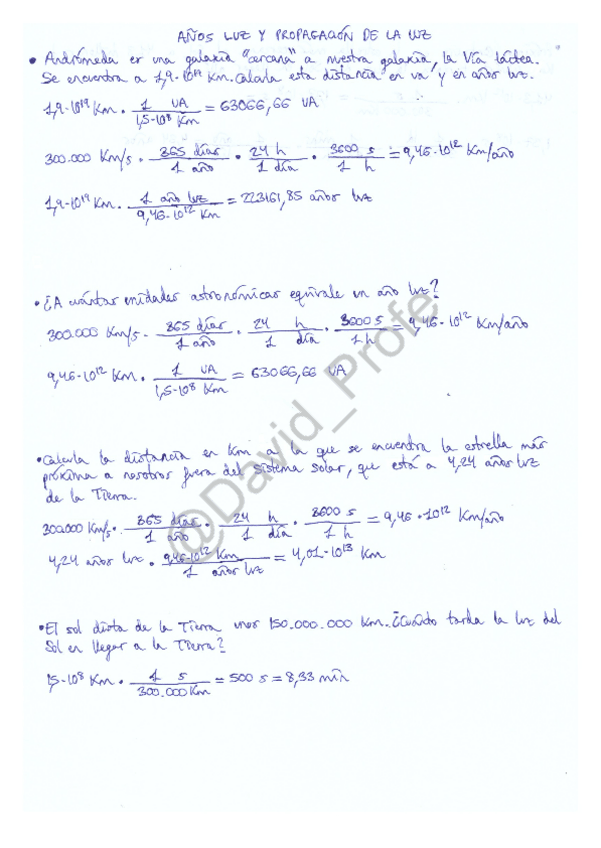 AÑOS LUZ Y PROPAGACIÓN DE LA LUZ
• Andrómeda es una galaxia "cercana" a nuestra galaxia, la Vía Láctea.
Se encuentra a 1,9·10¹⁹ Km. Calcula esta distancia en ua y en años luz.
1,9·10¹⁹ Km · 1 UA / 1,5·10⁸ Km = 63066,66 UA
300.000 Km/s · 365 días / 1 año · 24 h / 1 día · 3600 s / 1 h = 9,46·10¹² Km/año
1,9·10¹⁹ Km · 1 año luz / 9,46·10¹² Km = 223161,85 años luz
• ¿A cuántas unidades astronómicas equivale un año luz?
300.000 Km/s · 365 días / 1 año · 24 h / 1 día · 3600 s / 1 h = 9,46·10¹² Km/año
9,46·10¹² Km · 1 UA / 1,5·10⁸ Km = 63066,66 UA
• Calcula la distancia en Km a la que se encuentra la estrella más
próxima a nosotros fuera del sistema solar, que está a 4,24 años luz
de la Tierra.
300.000 Km/s · 365 días / 1 año · 24 h / 1 día · 3600 s / 1 h = 9,46·10¹² Km/año
4,24 años luz · 9,46·10¹² Km / 1 años luz = 4,01·10¹³ Km
• El sol dista de la Tierra unos 150.000.000 Km. ¿Cuánto tarda la luz del
Sol en llegar a la Tierra?
1,5·10⁸ Km · 1 s / 300.000 Km = 500 s = 8,33 min
@David_Profe